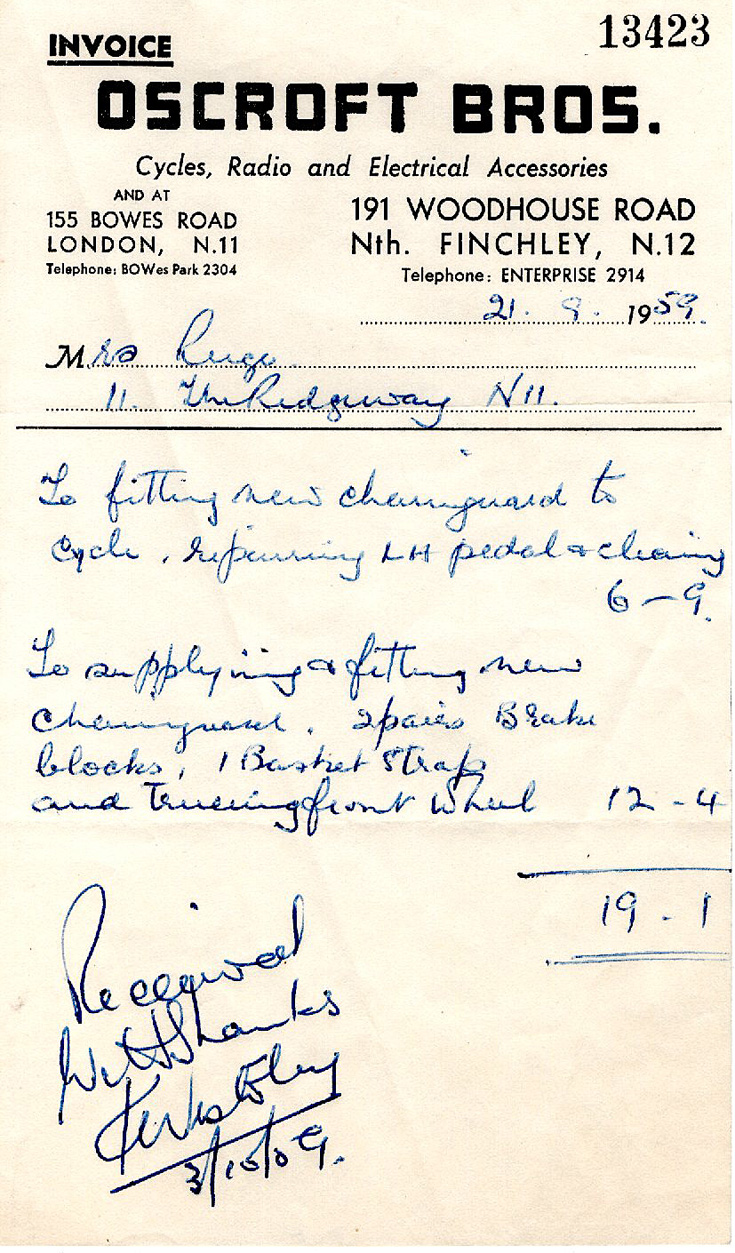 INVOICE
13423
OSCROFT BROS.
Cycles, Radio and Electrical Accessories
AND AT
155 BOWES ROAD
LONDON, N.11
Telephone: BOWes Park 2304
191 WOODHOUSE ROAD
Nth. FINCHLEY, N.12
Telephone: ENTERPRISE 2914
21. 9. 1959.
Mrs
11. The Ridgeway N11.
To fitting new chainguard to
cycle, repairing LH pedal & chaing
6-9.
To supplying & fitting new
chainguard. 2 pairs Brake
blocks, 1 Basket Strap
and Trueing front wheel 12-4
19-1
Received
With Thanks
3/10/59.